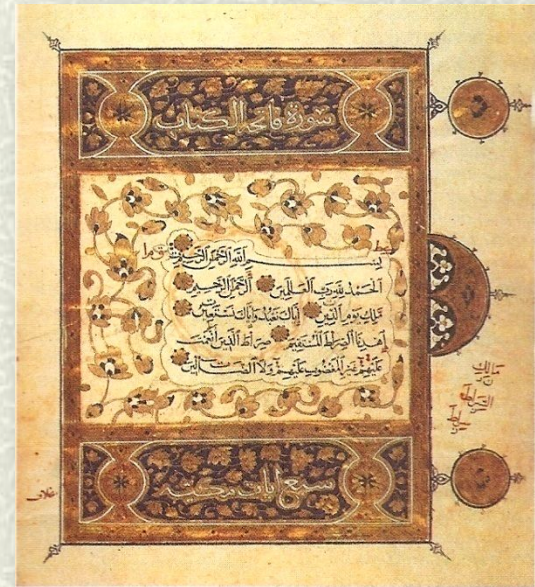 سورة فاتحة الكتاب
بسم الله الرحمن الرحيم
الحمد لله رب العلمين الرحمن الرحيم
ملك يوم الدين إياك نعبد وإياك نستعين
اهدنا الصراط المستقيم صراط الذين أنعمت
عليهم غير المغضوب عليهم ولا الضالين
سبع ايات مكية